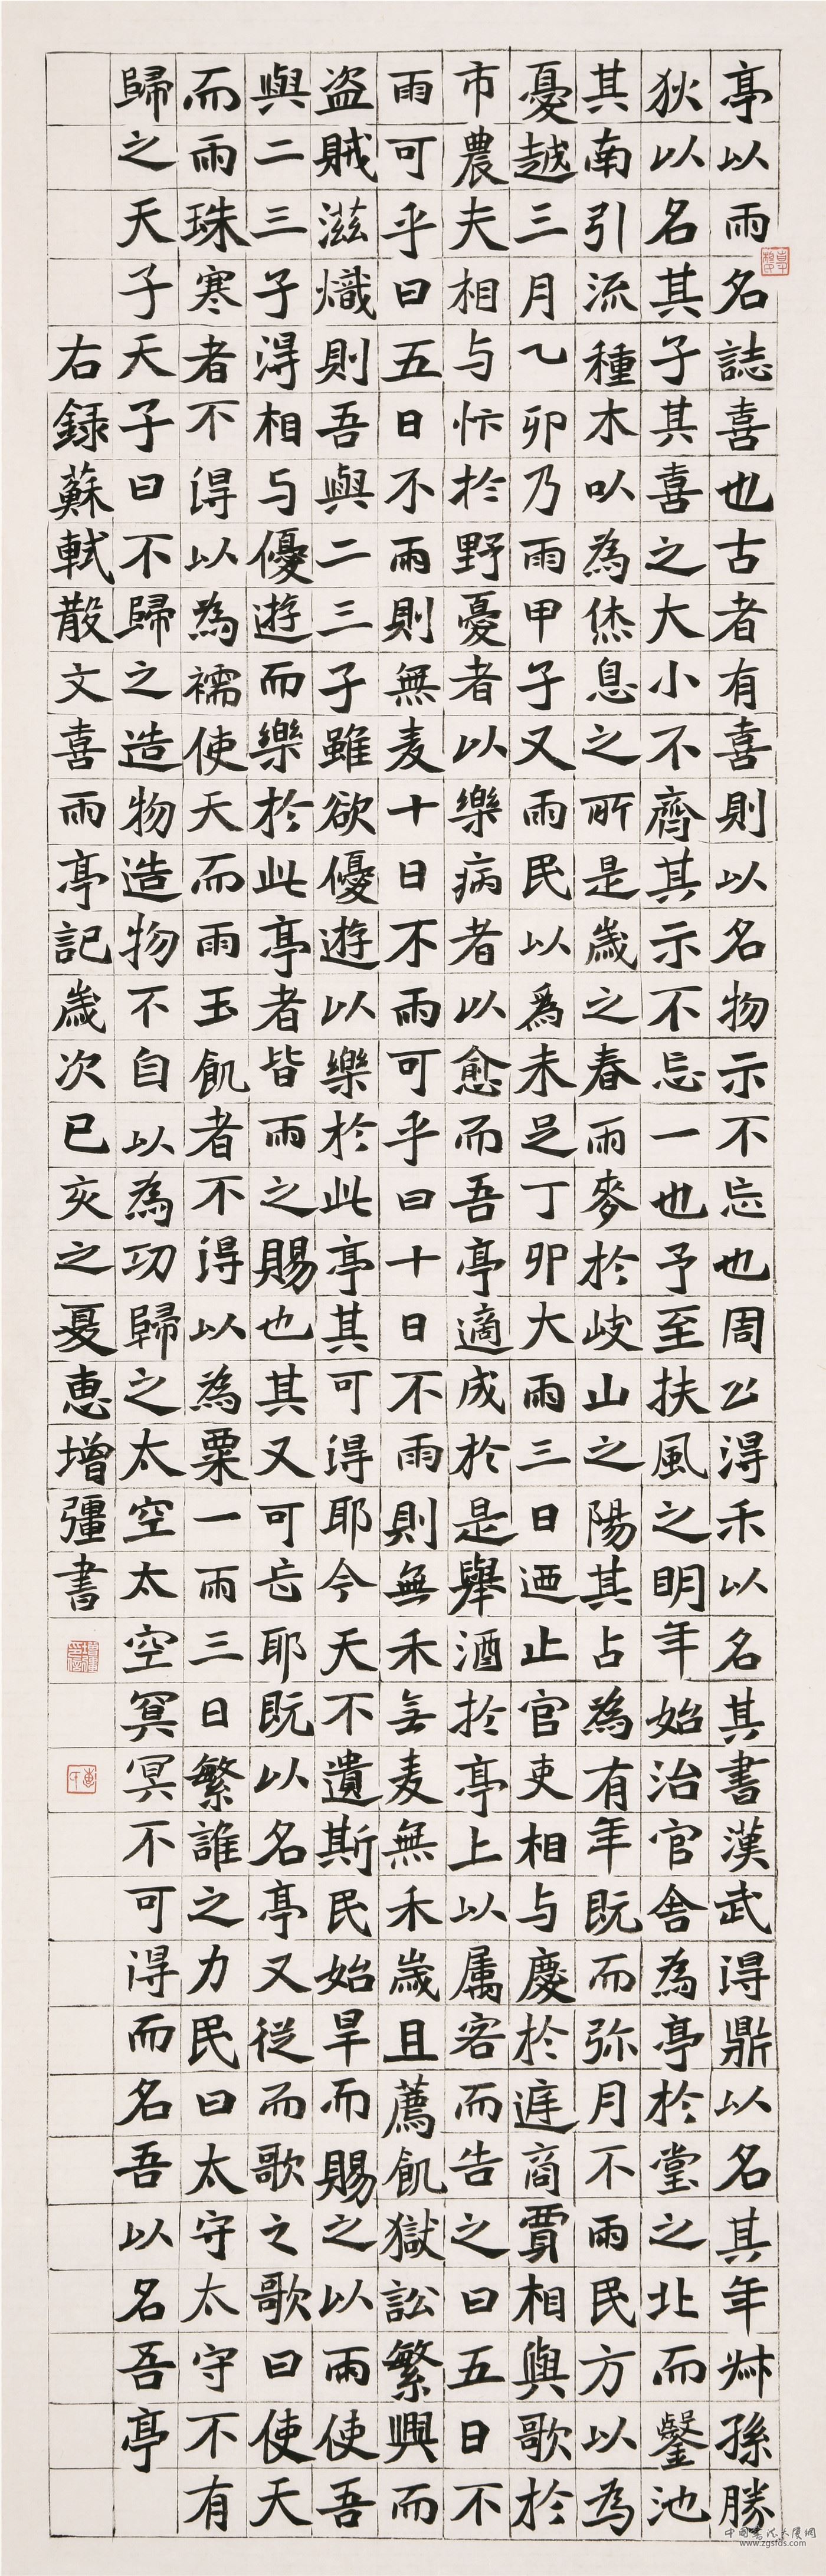 亭以雨名誌喜也古者有喜則以名物示不忘也周公得禾以名其書漢武得鼎以名其年叔孫勝
狄以名其子其喜之大小不齊其示不忘一也予至扶風之明年始治官舍為亭於堂之北而鑿池
其南引流種木以為休息之所是歲之春雨麥於岐山之陽其占為有年既而弥月不雨民方以為
憂越三月乙卯乃雨甲子又雨民以為未足丁卯大雨三日迺止官吏相与慶於庭商賈相與歌於
市農夫相与忭於野憂者以樂病者以愈而吾亭適成於是舉酒於亭上以属客而告之曰五日不
雨可乎曰五日不雨則無麦十日不雨可乎曰十日不雨則無禾無麦無禾歲且薦飢獄訟繁興而
盗賊滋熾則吾與二三子雖欲優遊以樂於此亭其可得耶今天不遺斯民始旱而賜之以雨使吾
與二三子得相与優遊而樂於此亭者皆雨之賜也其又可忘耶既以名亭又從而歌之歌曰使天
而雨珠寒者不得以為襦使天而雨玉飢者不得以為粟一雨三日繁誰之力民曰太守太守不有
歸之天子天子曰不歸之造物造物不自以為功歸之太空太空冥冥不可得而名吾以名吾亭
右録蘇軾散文喜雨亭記歲次己亥之夏惠增彊書
www.zgsfds.com